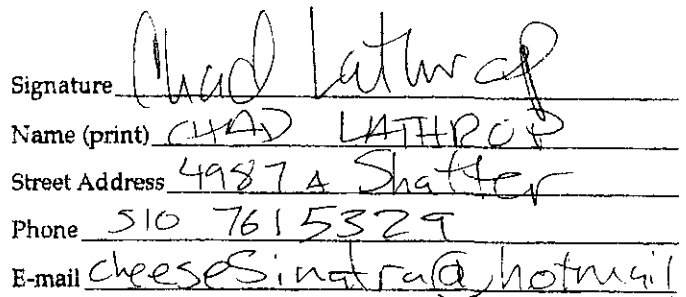 Signature Chad Lathrop
Name (print) CHAD LATHROP
Street Address 4987 A Shatter
Phone 510 7615329
E-mail cheeseSinatra@hotmail